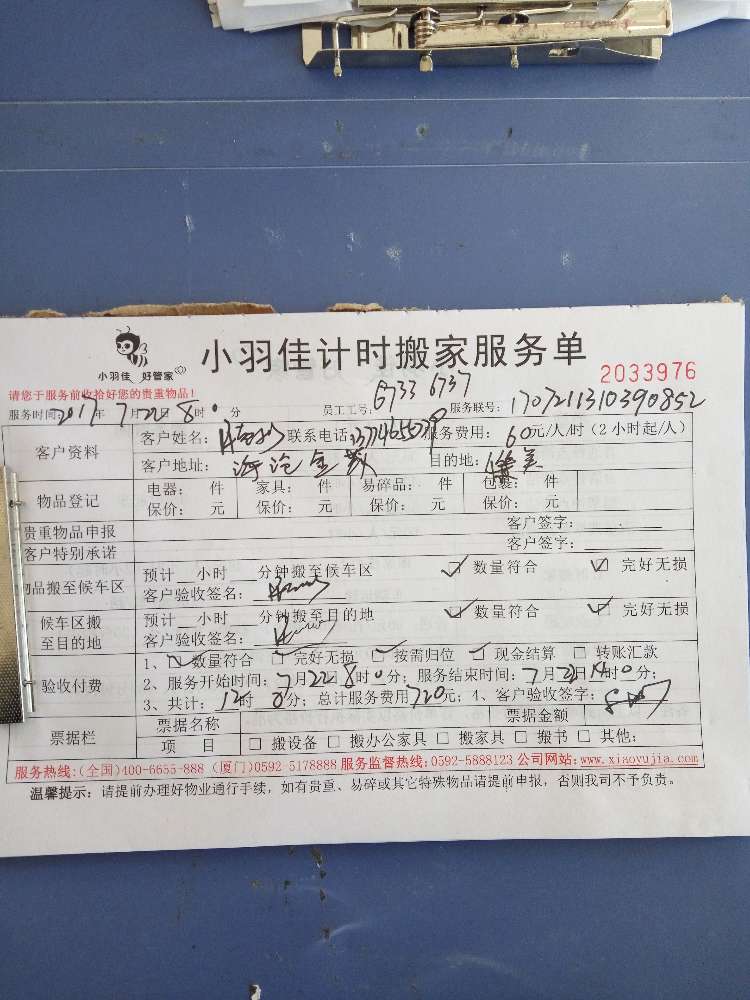 小羽佳 好管家
小羽佳计时搬家服务单
2033976
请您于服务前收拾好您的贵重物品!
服务时间2017年7月22日8时0分 员工工号:6733 6737 服务联号:170721131039 0852
客户资料
客户姓名: 联系电话: 服务费用:60元/人/时(2小时起/人)
客户地址:海沧 目的地:
物品登记
电器: 件 家具: 件 易碎品: 件 包裹: 件
保价: 元 保价: 元 保价: 元 保价: 元
贵重物品申报 客户签字:
客户特别承诺 客户签字:
物品搬至候车区
预计__小时__分钟搬至候车区 ☑数量符合 ☑完好无损
客户验收签名:
候车区搬至目的地
预计__小时__分钟搬至目的地 ☑数量符合 ☑完好无损
客户验收签名:
验收付费
1、☑数量符合 ☑完好无损 ☑按需归位 ☑现金结算 □转账汇款
2、服务开始时间:7月22日8时0分;服务结束时间:7月 日14时0分;
3、共计:12时0分;总计服务费用720元;4、客户验收签字:
票据栏
票据名称 票据金额
项 目 □搬设备 □搬办公家具 □搬家具 □搬书 □其他:
服务热线:(全国)400-6655-888 (厦门)0592-5178888 服务监督热线:0592-5888123 公司网站:www.xiaoyujia.com
温馨提示:请提前办理好物业通行手续,如有贵重、易碎或其它特殊物品请提前申报,否则我司不予负责。